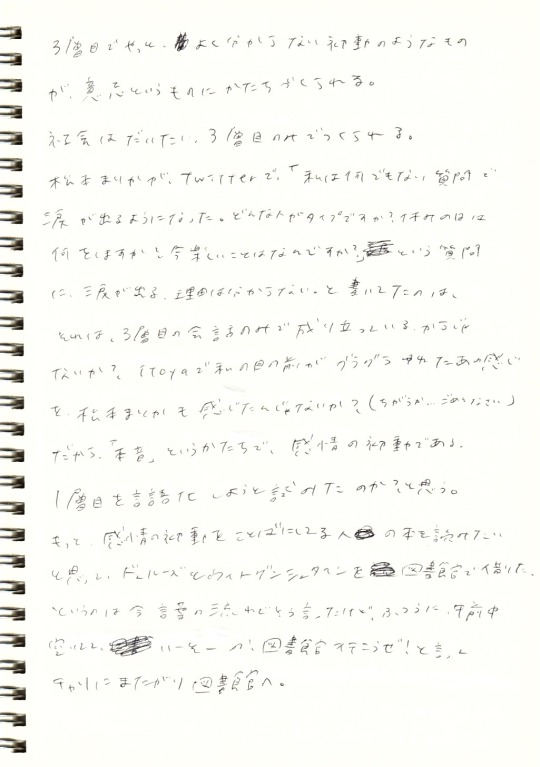 3層目でやっと、よく分からない初動のようなもの
が、意志というものにかたちづくられる。
社会はだいたい、3層目のみでつくられる。
松本まりかが、Twitterで、「私は何でもない質問で
涙が出るようになった。どんな人がタイプですか?休みの日は
何をしますか?今楽しいことはなんですか?」という質問
に、涙が出る。理由は分からない。と書いてたのは、
それは、3層目の会話のみで成り立っているからじゃ
ないか?、itoyaで私の目の前がグラグラ した あの感じ
を、松本まりかも感じたんじゃないか?(ちがうか…ごめんなさい)
だから、「本音」というかたちで、感情の初動である
1層目を言語化しようと試みたのか?と思う。
もっと、感情の初動をことばにしてる人の本を読みたい
と思って、ドゥルーズとウィトゲンシュタインを図書館で借りた。
というのは今言葉の流れでそう言ったけど、ふつうに、午前中
空いてて、いーそーが、図書館行こうぜ!と言って
チャリにまたがり図書館へ。